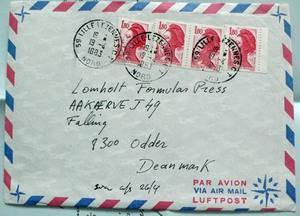 1,80 1,80 1,80 1,80
59 LILLE
18
19-4
1983
NORD
Lomholt Formular Press
AAKÆRVEJ 49
Falling
8300 Odder
Deanmark
PAR AVION
VIA AIR MAIL
LUFTPOST